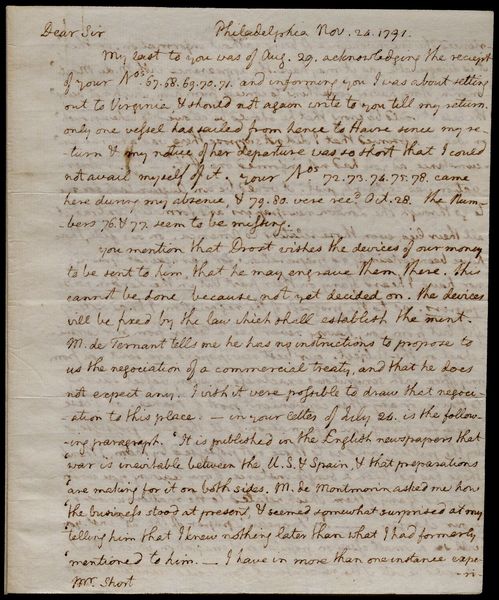 Dear Sir Philadelphia Nov. 24. 1791.
My last to you was of Aug. 29. acknoledging the receipt
of your Nos. 67. 68. 69. 70. 71. and informing you I was about setting
out to Virginia & should not again write to you till my return.
only one vessel has sailed from hence to Havre since my re-
turn & my notice of her departure was so short that I could
not avail myself of it. your Nos 72. 73. 74. 75. 78. came
here during my absence, & 79. 80. were recd. Oct. 28. the Num-
bers 76. & 77. seem to be missing.
you mention that Drost wishes the devices of our money
to be sent to him, that he may engrave them there. This
cannot be done, because not yet decided on. the devices
will be fixed by the law which shall establish the mint.
M. de Ternant tells me he has no instructions to propose to
us the negociation of a commercial treaty, and that he does
not expect any. I wish it were possible to draw that negoci-
-ation to this place. — in your letter of July 24. is the follow-
-ing paragraph. 'It is published in the English newspapers that
'war is inevitable between the U.S. & Spain, & that preparations
'are making for it on both sides. M. de Montmorin asked me how
'the business stood at present, & seemed somewhat surprised at my
'telling him that I knew nothing later than what I had formerly
'mentioned to him. — I have in more than one instance expe-
Mr. Short -ri-